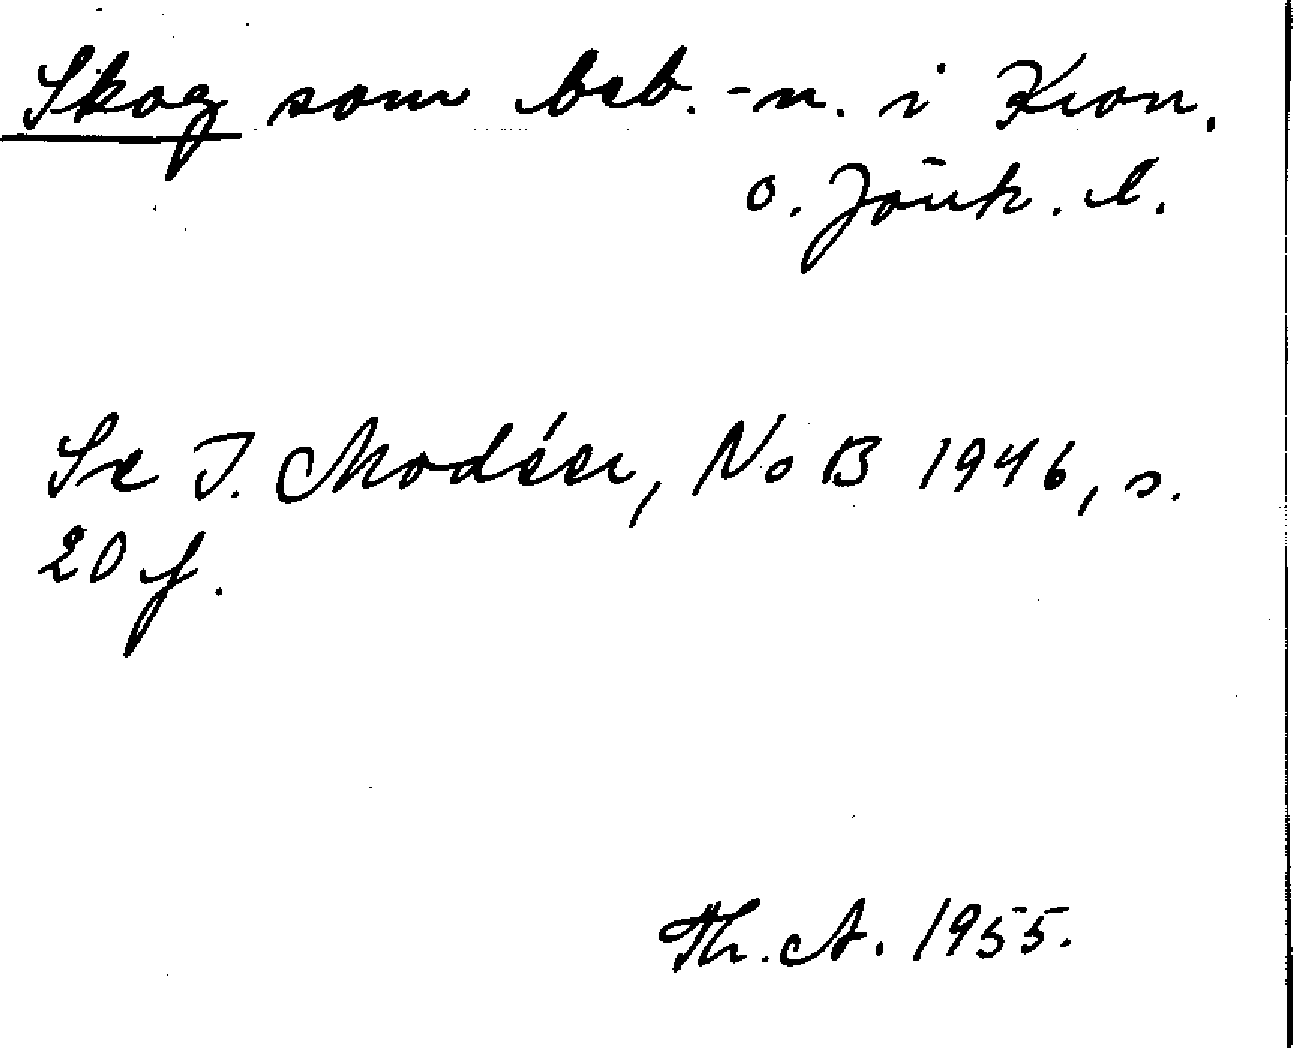 Skog som beb.-n. i Kron.
o. Jönk. l.
Se I. Modéer, NoB 1946, s.
20 f.
Th. A. 1955.